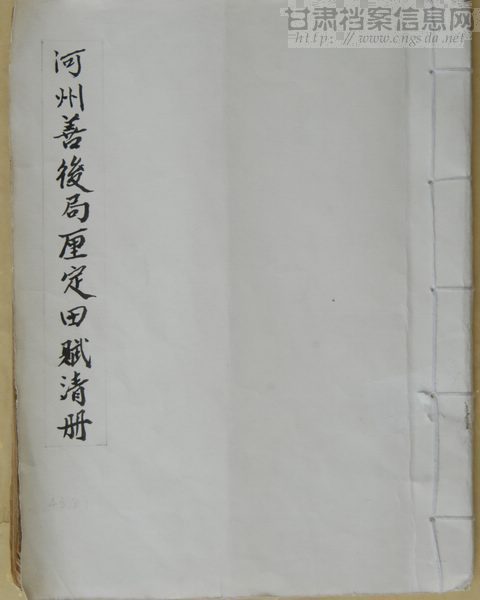 甘肃档案信息网
http://www.cngsda.net
河州善後局厘定田赋清册